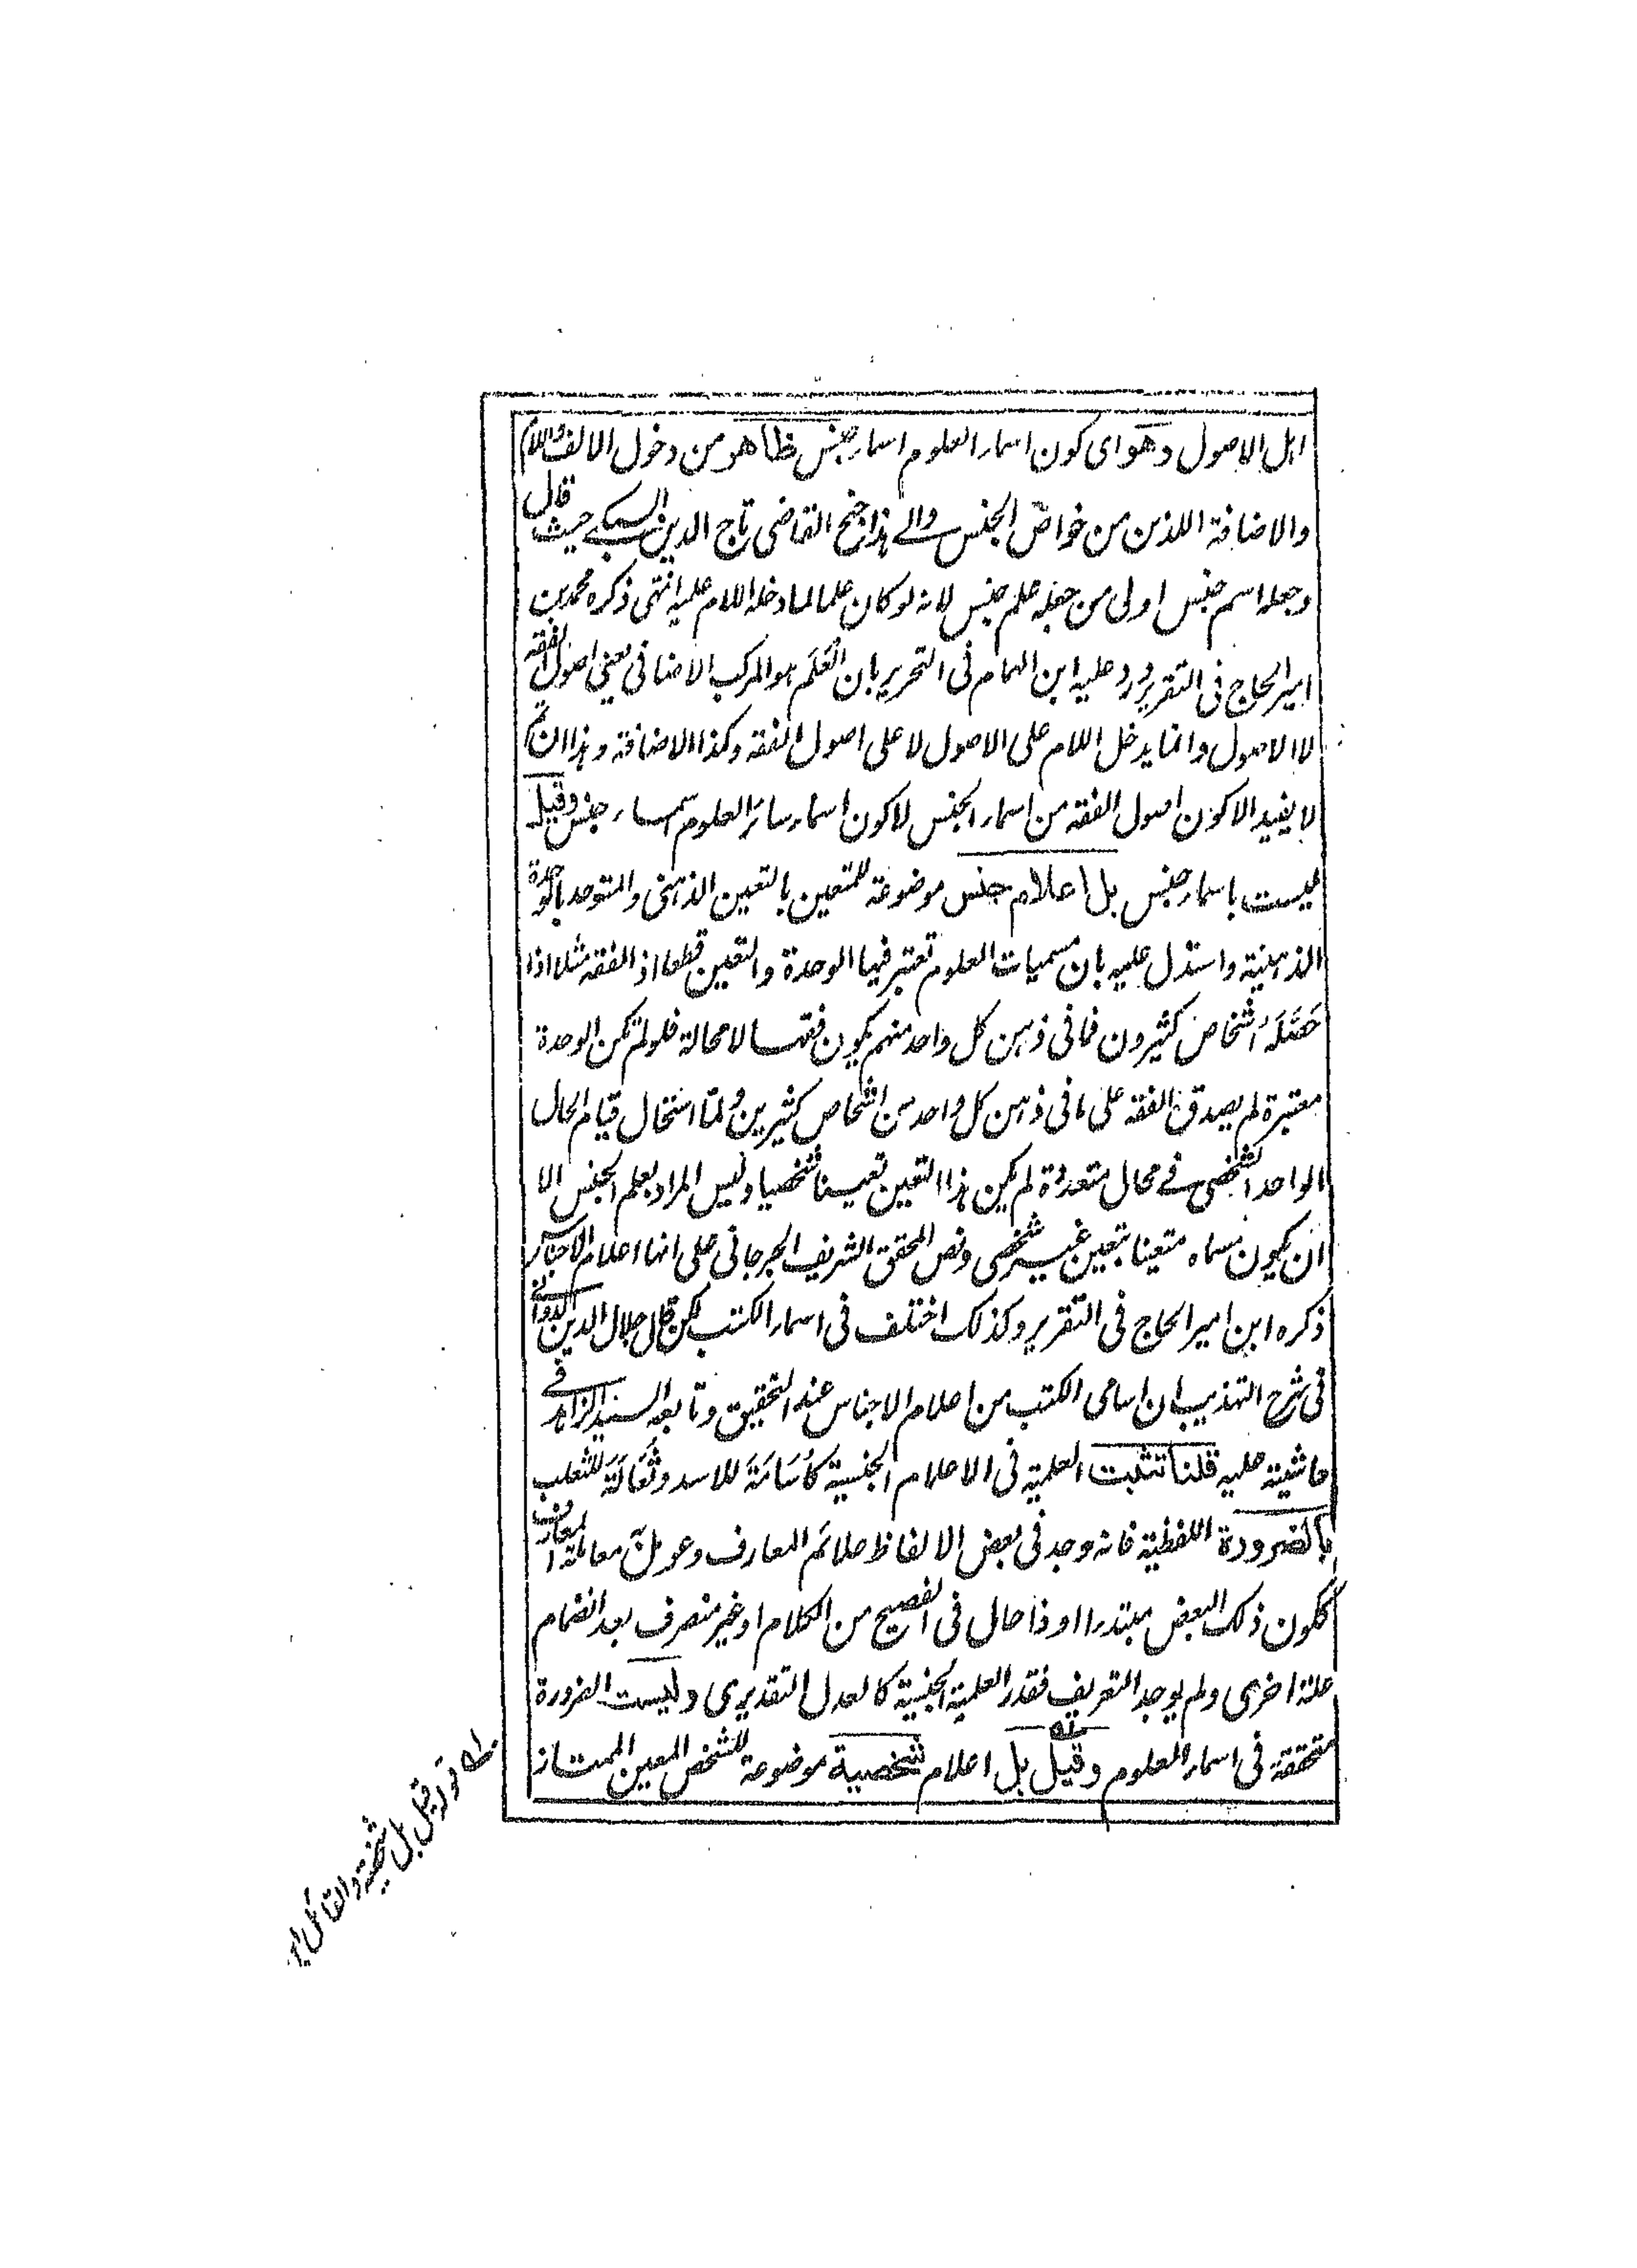 اهل الاصول وهو اى كون اسماء العلوم اسماء جنس ظاهر من دخول الالف واللام
والاضافة اللذين من خواص الجنس والى هذا جنح القاضى تاج الدين السبكى حيث قال
وجعله اسم جنس اولى من جعله علم جنس لانه لو كان علما لما دخله اللام عليه انتهى ذكره محمد بن
امير الحاج فى التقرير ورد عليه ابن الهمام فى التحرير بان العَلَم هو المركب الاضافى يعنى اصول الفقه
لا الاصول وانما يدخل اللام على الاصول لا على اصول الفقه وكذا الاضافة وهذا ان تم
لا يفيد الا كون اصول الفقه من اسماء الجنس لا كون اسماء سائر العلوم اسماء جنس وقيل
ليست باسماء جنس بل اعلام جنس موضوعة للمتعين بالتعين الذهنى والمتوحد بالوحدة
الذهنية واستدل عليه بان مسميات العلوم تعتبر فيها الوحدة والتعين قطعا اذ الفقه مثلا اذا
حَصَّلَهُ اشخاص كثيرون فما فى ذهن كل واحد منهم يكون فقها لا محالة فلو لم تكن الوحدة
معتبرة لم يصدق الفقه على ما فى ذهن كل واحد من اشخاص كثيرين ولمّا استحال قيام الحال
الواحد الشخصى فى محال متعددة لم يكن هذا التعين تعينا شخصيا وليس المراد بعلم الجنس الا
ان يكون مسماه متعينا بتعين غير شخصى ونص المحقق الشريف الجرجانى على انها اعلام الاجناس
ذكره ابن امير الحاج فى التقرير وكذلك اختلف فى اسماء الكتب لكن قال جلال الدين الدوانى
فى شرح التهذيب ان اسامى الكتب من اعلام الاجناس عند التحقيق وتابعه السيد الزاهد فى
حاشيته عليه قلنا تثبت العلمية فى الاعلام الجنسية كاُسَامَةَ للاسد وثُعَالَةَ للثعلب
بالضرورة اللفظية فانه وجد فى بعض الالفاظ علائم المعارف وعومل به معاملة المعارف
ككون ذلك البعض مبتدءا او ذا حال فى الفصيح من الكلام او غير منصرف بعد انضمام
علة اخرى ولم يوجد التعريف فقدر العلمية الجنسية كالعدل التقديرى وليست الضرورة
متحققة فى اسماء العلوم وقيل بل اعلام شخصية موضوعة للشخص المعين الممتاز
له قوله وقيل بل شخصية والقائل